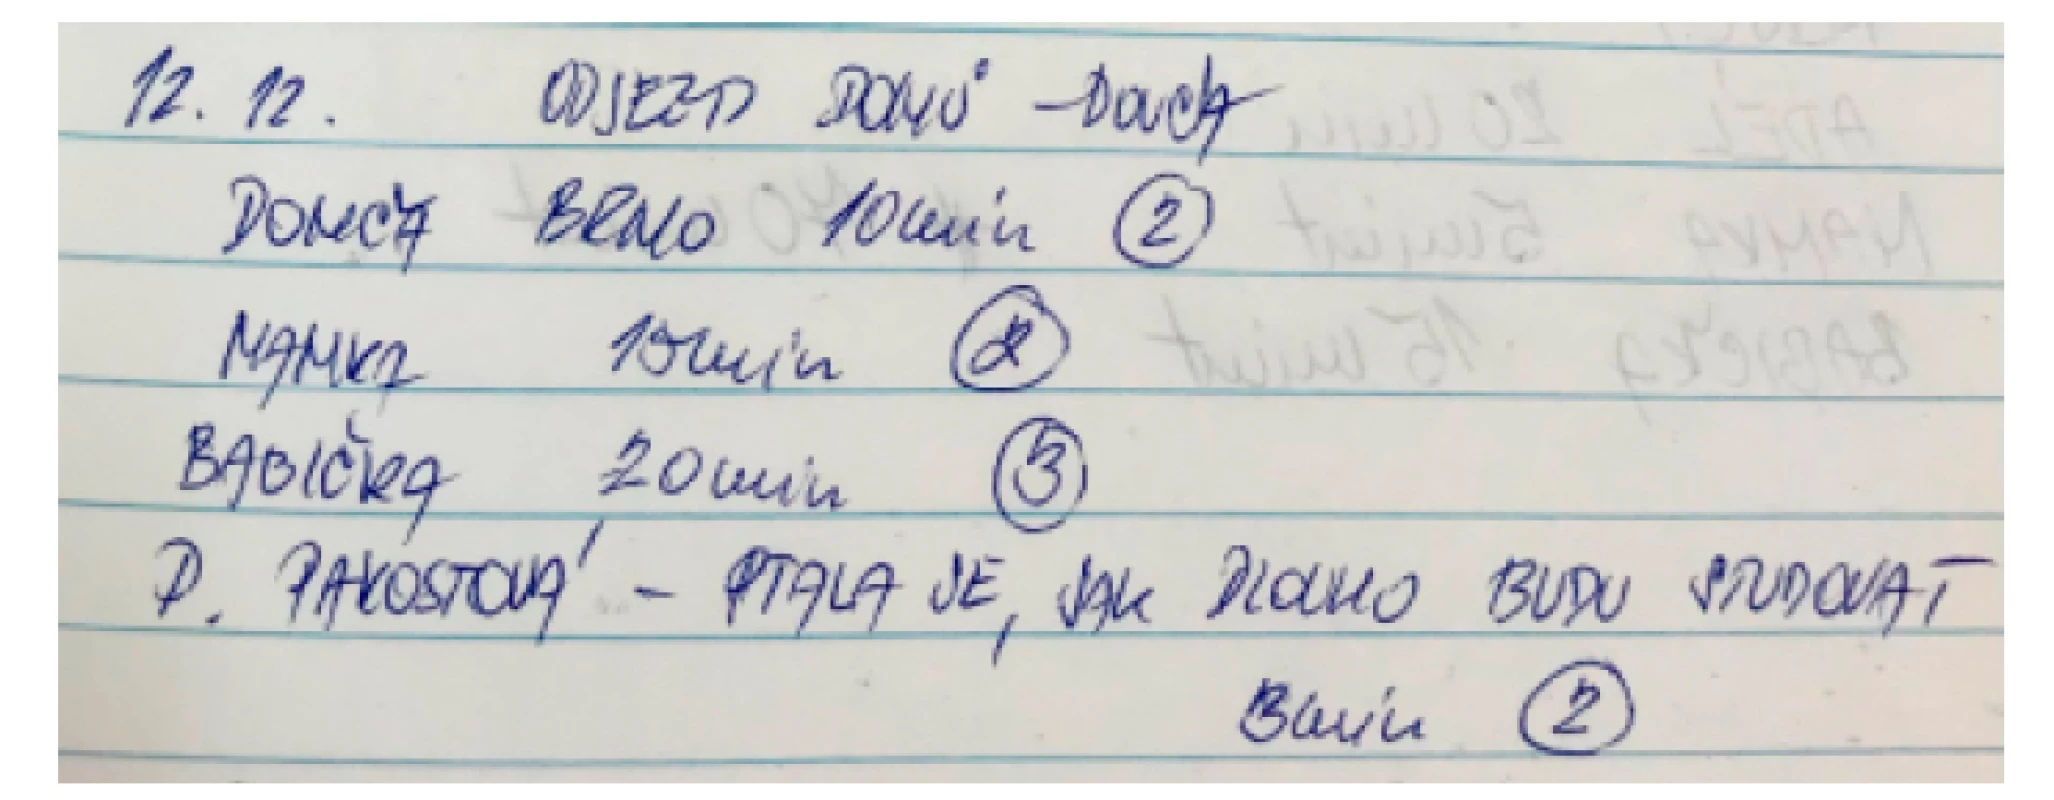 12. 12. ODJEZD DOMŮ
DOMČA BRNO 10min 2
MAMKA 15min 2
BABIČKA 20min 3
P. PAKOSTOVÁ - PTALA SE, JAK DLOUHO BUDU STUDOVAT
3min 2